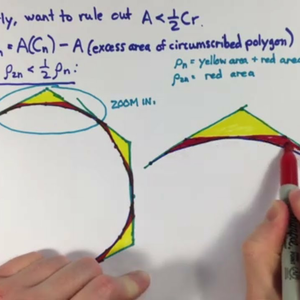 want to rule out A < ½Cr.
= A(Cₙ) − A (excess area of circumscribed polygon)
ρ₂ₙ < ½ρₙ:
ρₙ = yellow area + red area
ρ₂ₙ = red area
ZOOM IN.